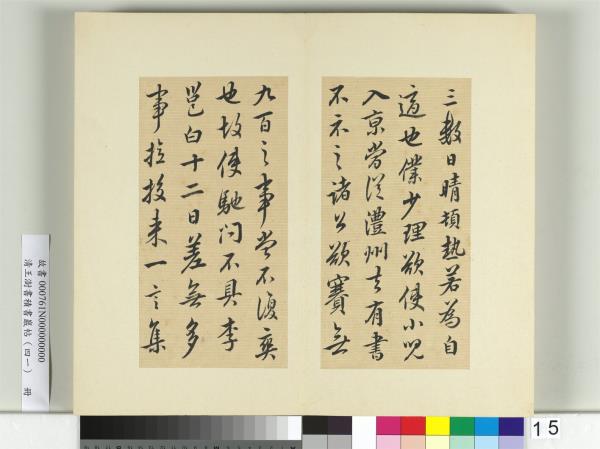 三數日晴頓熱若為自
適也僕少理欲使小兒
入京當從澧州去有書
不示之諸公欲賽無
九百之事當不復奕
也故使馳問不具李
邕白十二日差無多
事撿投来一言集
故書 000761N000000000
清王澍書積書巖帖(四一) 冊
15